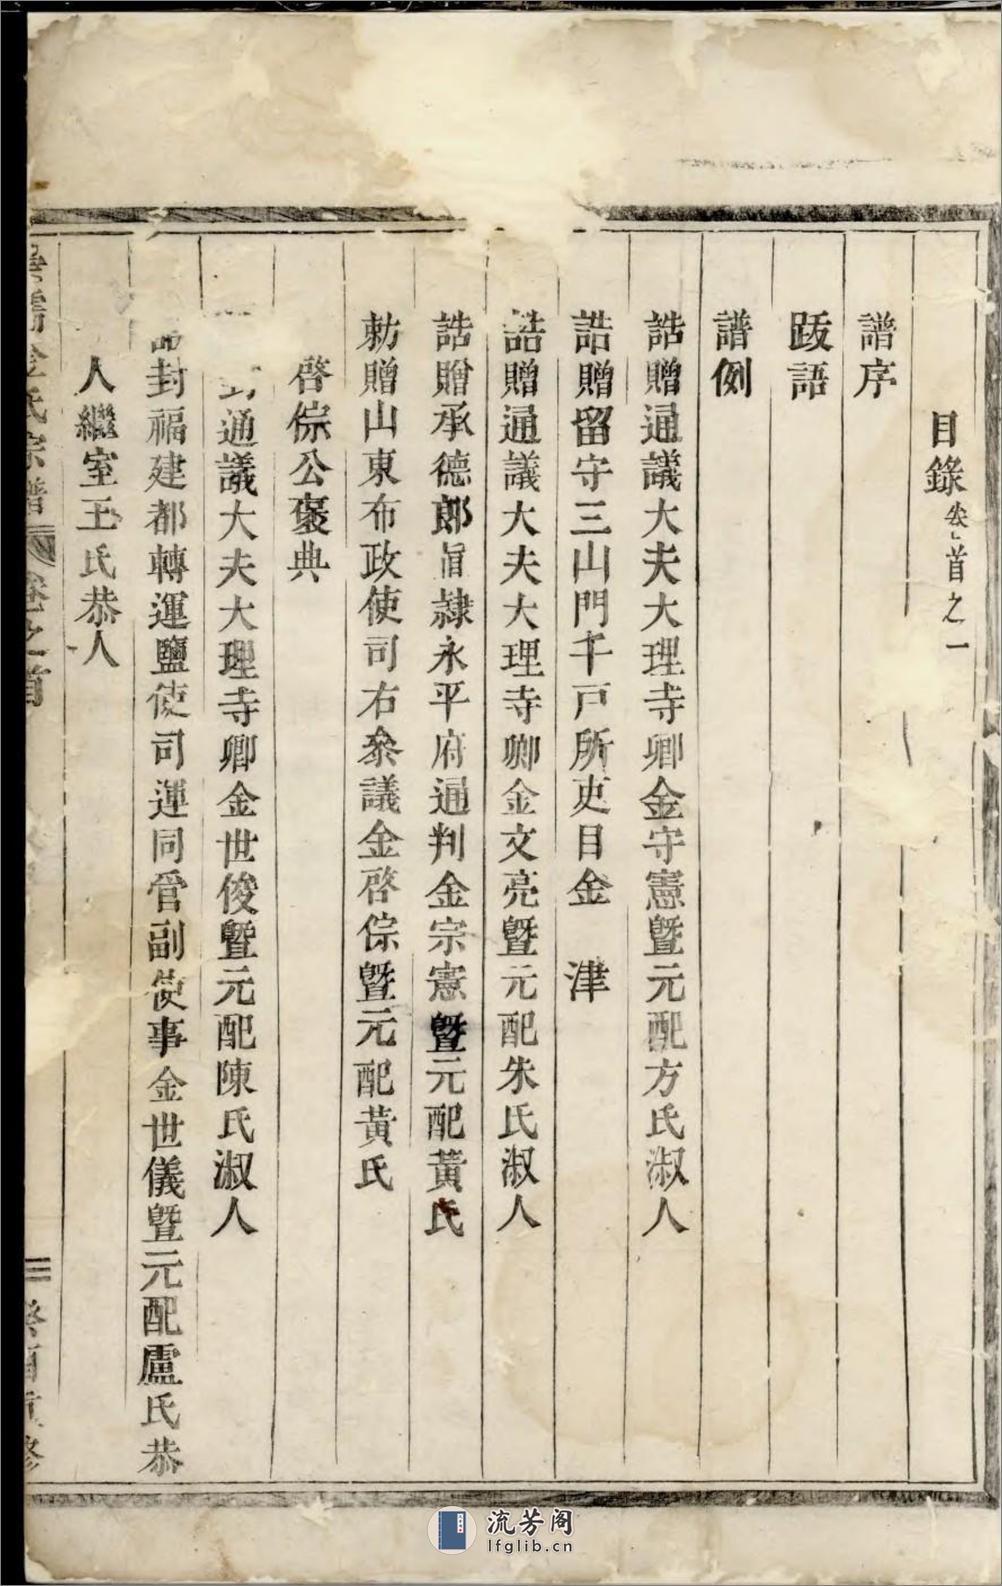 目錄卷首之一
譜序
跋語
譜例
誥贈通議大夫大理寺卿金守憲暨元配方氏淑人
誥贈留守三山門千戸所吏目金　津
誥贈通議大夫大理寺卿金文亮暨元配朱氏淑人
誥贈承德郎直隷永平府通判金宗憲暨元配黃氏
勅贈山東布政使司右叅議金啓倧暨元配黃氏
啓倧公褒典
封通議大夫大理寺卿金世俊暨元配陳氏淑人
誥封福建都轉運鹽使司運同管副使事金世儀暨元配盧氏恭
人繼室王氏恭人
金氏宗譜　卷之首　二　癸酉重修
流芳阁
lfglib.cn